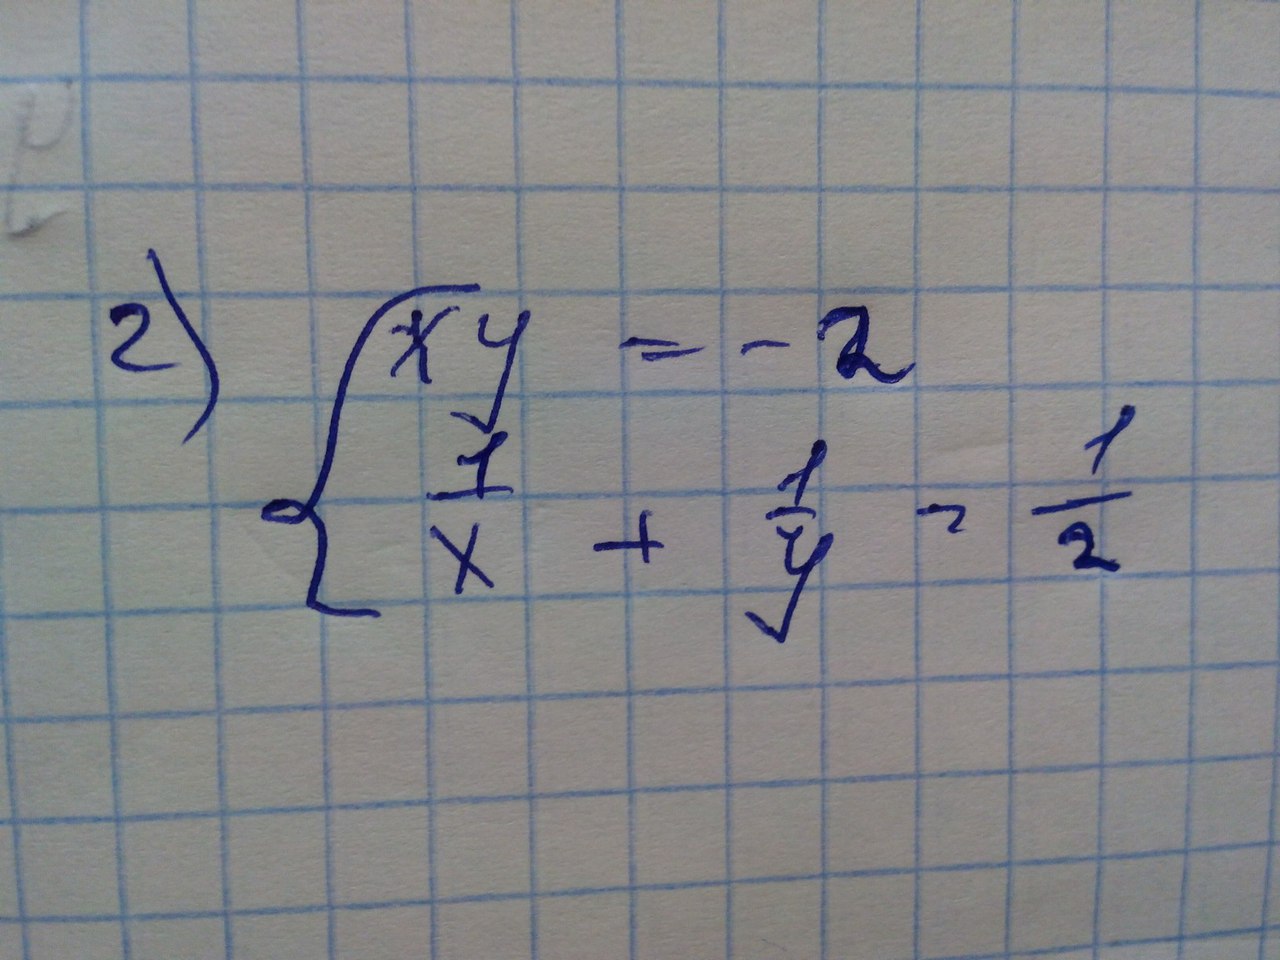 2) { xy = -2
1/x + 1/y = 1/2